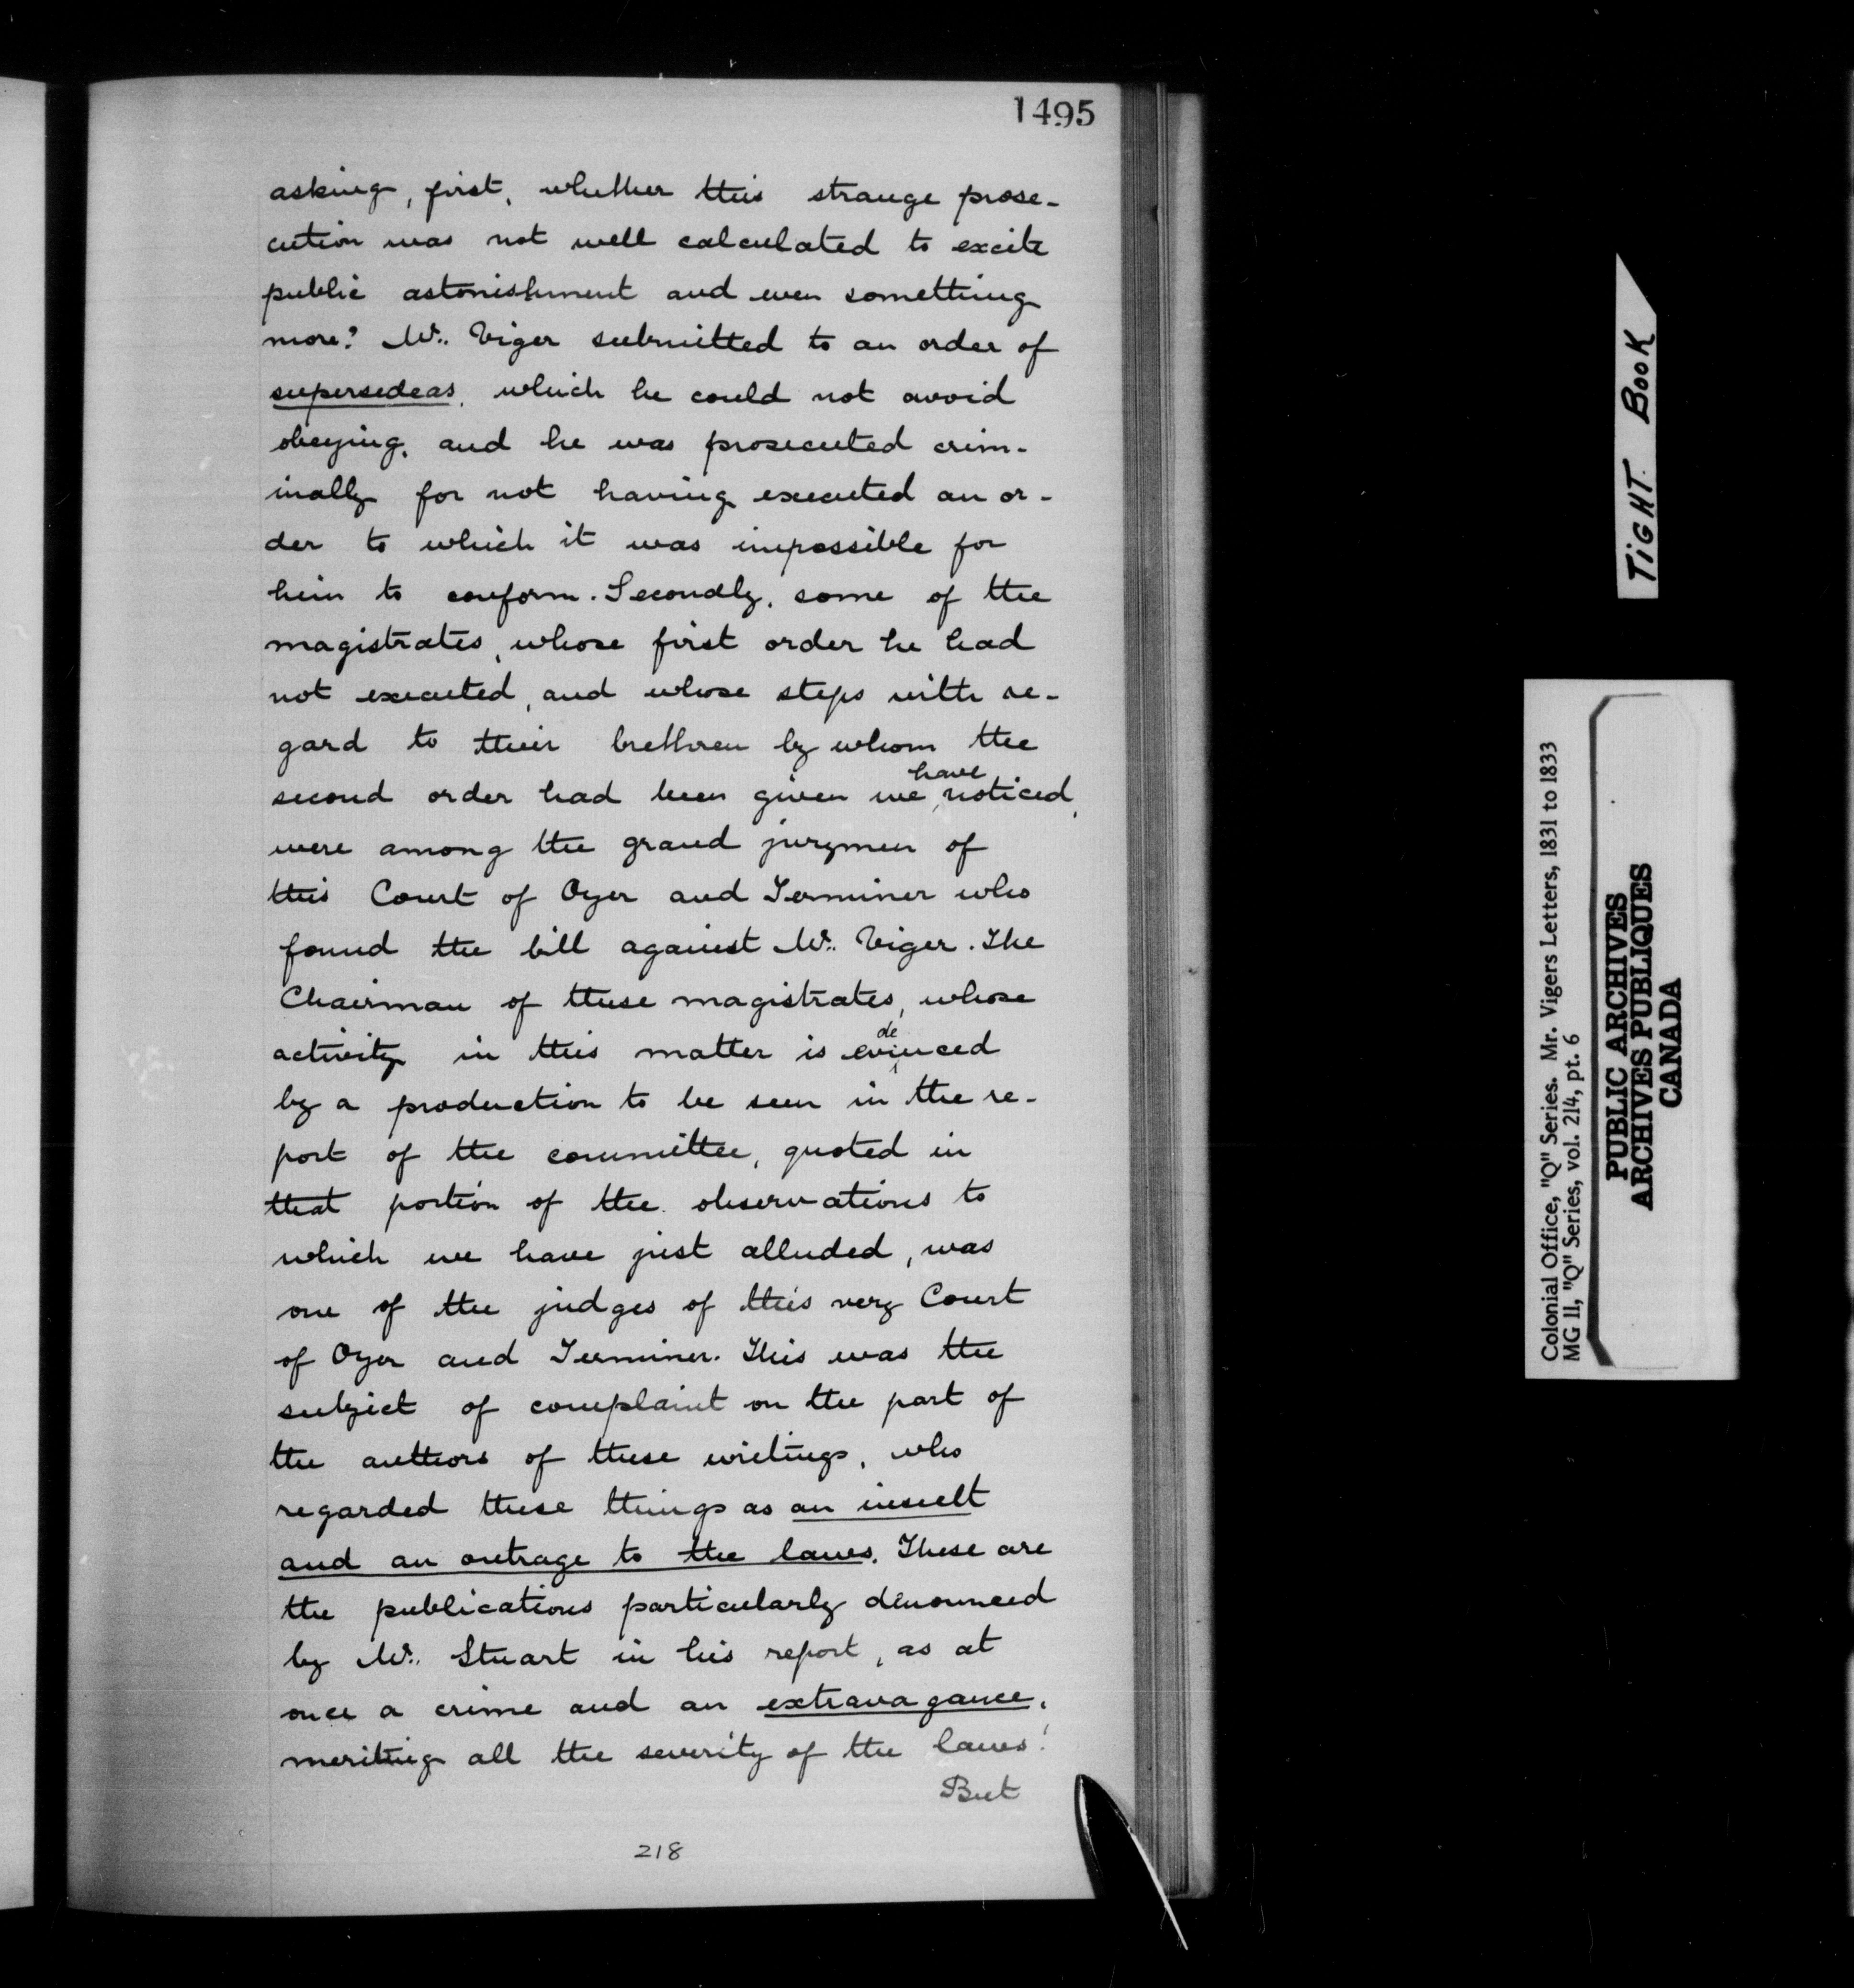 1495
asking, first, whether this strange prose-
cution was not well calculated to excite
public astonishment and even something
more? Mr. Viger submitted to an order of
supersedeas, which he could not avoid
obeying, and he was prosecuted crim-
inally for not having executed an or-
der to which it was impossible for
him to conform. Secondly, some of the
magistrates, whose first order he had
not executed, and whose steps with re-
gard to their brethren by whom the
second order had been given we have noticed,
were among the grand jurymen of
this Court of Oyer and Terminer who
found the bill against Mr. Viger. The
Chairman of these magistrates, whose
activity in this matter is evidenced
by a production to be seen in the re-
port of the committee, quoted in
that portion of the observations to
which we have just alluded, was
one of the judges of this very Court
of Oyer and Terminer. This was the
subject of complaint on the part of
the authors of these writings, who
regarded these things as an insult
and an outrage to the laws. These are
the publications particularly denounced
by Mr. Stuart in his report, as at
once a crime and an extravagance,
meriting all the severity of the laws!
But
218
TIGHT BOOK
Colonial Office, "Q" Series. Mr. Vigers Letters, 1831 to 1833
MG 11, "Q" Series, vol. 214, pt. 6
PUBLIC ARCHIVES
ARCHIVES PUBLIQUES
CANADA